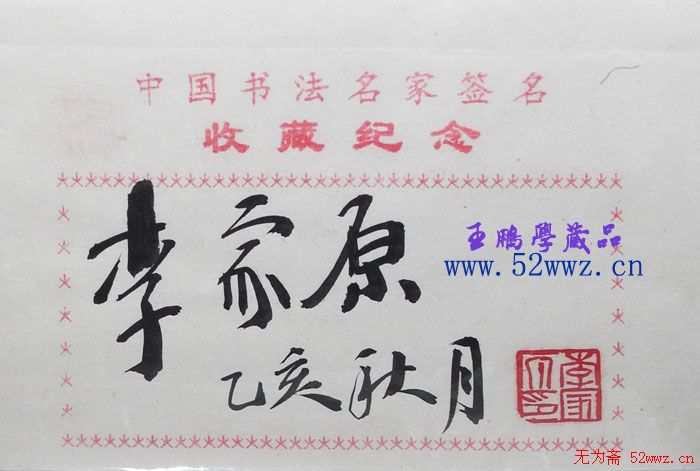 中国书法名家签名
收藏纪念
李家原
王鹏學藏品
www.52wwz.cn
乙亥秋月
无为斋 52wwz.cn